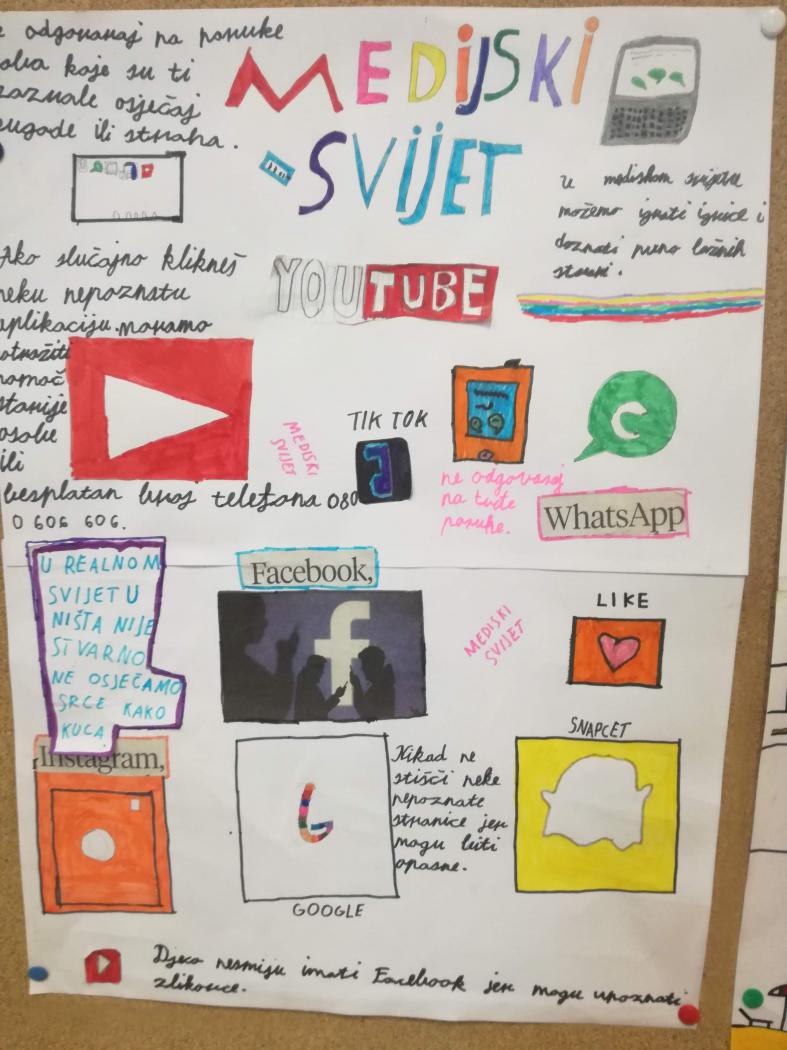 odgovaraj na poruke
koje su ti
osjećaj
ili straha.
MEDIJSKI
SVIJET
u mediskom svijetu
možemo igrati igrice i
doznati puno lažnih
stvari.
Ako slučajno klikneš
neku nepoznatu
aplikaciju moramo
potražiti
pomoć
starije
osobe
ili
besplatan broj telefona 080
0 606 606.
YOUTUBE
MEDISKI
SVIJET
TIK TOK
ne odgovaraj
na tuđe
poruke.
WhatsApp
U REALNOM
SVIJETU
NIŠTA NIJE
STVARNO
NE OSJEĆAMO
SRCE KAKO
KUCA
Facebook,
f
MEDISKI
SVIJET
LIKE
Instagram,
G
GOOGLE
Nikad ne
stišći neke
nepoznate
stranice jer
mogu biti
opasne.
SNAPCET
Djeca nesmiju imati Facebook jer mogu upoznati
zlikovce.